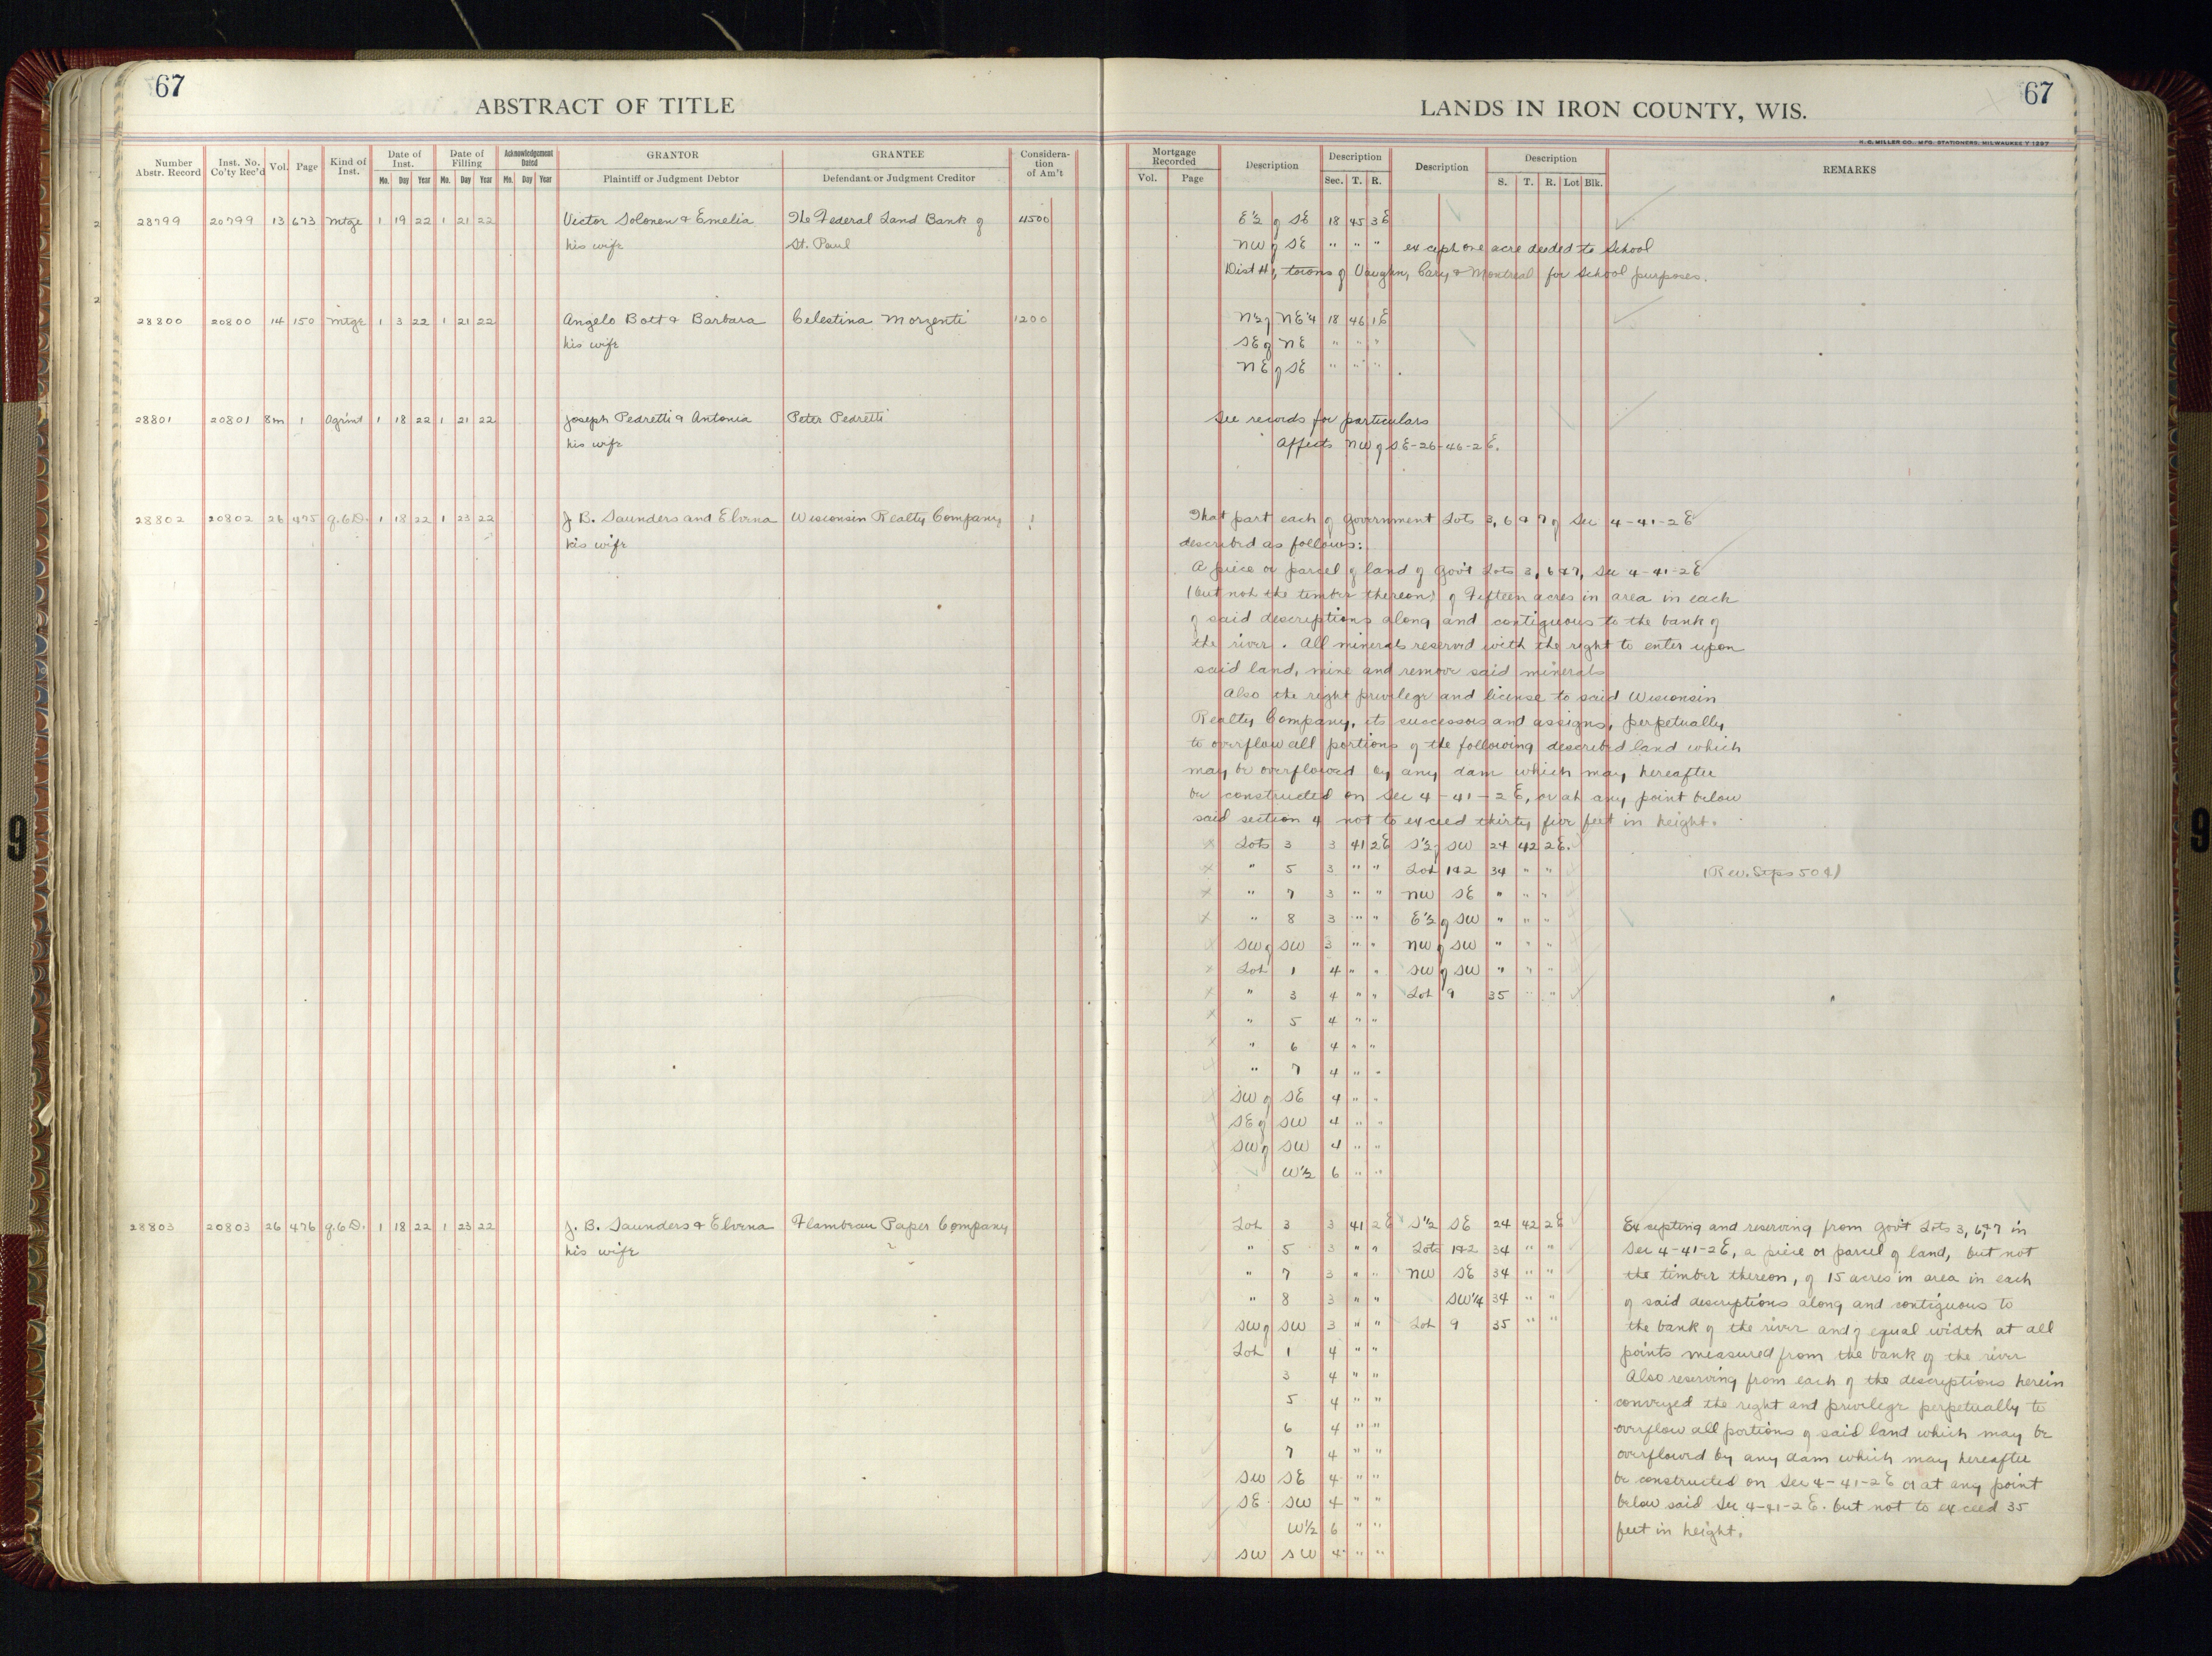 67
67
ABSTRACT OF TITLE
LANDS IN IRON COUNTY, WIS.
H. C. MILLER CO., MFG. STATIONERS, MILWAUKEE
Number Abstr. Record Inst. No. Co'ty Rec'd Vol. Page Kind of Inst. Date of Inst. Mo. Day Year Date of Filling Mo. Day Year Acknowledgement Dated Mo. Day Year GRANTOR Plaintiff or Judgment Debtor GRANTEE Defendant or Judgment Creditor Considera-tion of Am't
Mortgage Recorded Vol. Page Description Description Sec. T. R. Description Description S. T. R. Lot Blk. REMARKS
28799 20799 13 673 Mtge 1 19 22 1 21 22 Victor Solonen & Emelia The Federal Land Bank of 4500 E½ of SE 18 45 3E
his wife St. Paul NW of SE " " " except one acre deeded to School
Dist #1, towns of Vaughn, Cary & Montreal for School purposes.
28800 20800 14 150 Mtge 1 3 22 1 21 22 Angelo Bott & Barbara Celestina Morzenti 1200 N½ of NE¼ 18 46 1E
his wife SE of NE " " "
NE of SE " " "
28801 20801 8m 1 Agrmt 1 18 22 1 21 22 Joseph Pedretti & Antonia Peter Pedretti See records for particulars
his wife Affects NW of SE-26-46-2E.
28802 20802 26 475 Q.C.D. 1 18 22 1 23 22 J. B. Saunders and Elvena Wisconsin Realty Company 1 That part each of Government Lots 3, 6 & 7 of Sec 4-41-2E
his wife described as follows:
A piece or parcel of land of Gov't Lots 3, 6 & 7, Sec 4-41-2E
(but not the timber thereon) of Fifteen acres in area in each
of said descriptions along and contiguous to the bank of
the river. All minerals reserved with the right to enter upon
said land, mine and remove said minerals
Also the right privilege and license to said Wisconsin
Realty Company, its successors and assigns, perpetually
to overflow all portions of the following described land which
may be overflowed by any dam which may hereafter
be constructed on Sec 4-41-2E, or at any point below
said section 4 not to exceed thirty five feet in height.
x Lots 3 3 41 2E S½ of SW 24 42 2E.
x " 5 3 " " Lot 1&2 34 " " (Rev. Stps 50¢)
x " 7 3 " " NW SE " " "
x " 8 3 " " E½ of SW " " "
SW of SW 3 " " NW of SW " " "
x Lot 1 4 " " SW of SW " " "
x " 3 4 " " Lot 9 35 " "
x " 5 4 " "
x " 6 4 " "
" 7 4 " "
SW of SE 4 " "
SE of SW 4 " "
SW of SW 4 " "
W½ 6 " "
28803 20803 26 476 Q.C.D. 1 18 22 1 23 22 J. B. Saunders & Elvena Flambeau Paper Company Lot 3 3 41 2E S½ SE 24 42 2E Excepting and reserving from Gov't Lots 3, 6, &7 in
his wife " 5 3 " " Lots 1&2 34 " " Sec 4-41-2E, a piece or parcel of land, but not
" 7 3 " " NW SE 34 " " the timber thereon, of 15 acres in area in each
" 8 3 " " SW¼ 34 " " of said descriptions along and contiguous to
SW of SW 3 " " Lot 9 35 " " the bank of the river and of equal width at all
Lot 1 4 " " points measured from the bank of the river
3 4 " " Also reserving from each of the descriptions herein
5 4 " " conveyed the right and privilege perpetually to
6 4 " " overflow all portions of said land which may be
7 4 " " overflowed by any dam which may hereafter
SW SE 4 " " be constructed on Sec 4-41-2E or at any point
SE SW 4 " " below said Sec 4-41-2E. but not to exceed 35
W½ 6 " " feet in height.
SW SW 4 " "
9
9